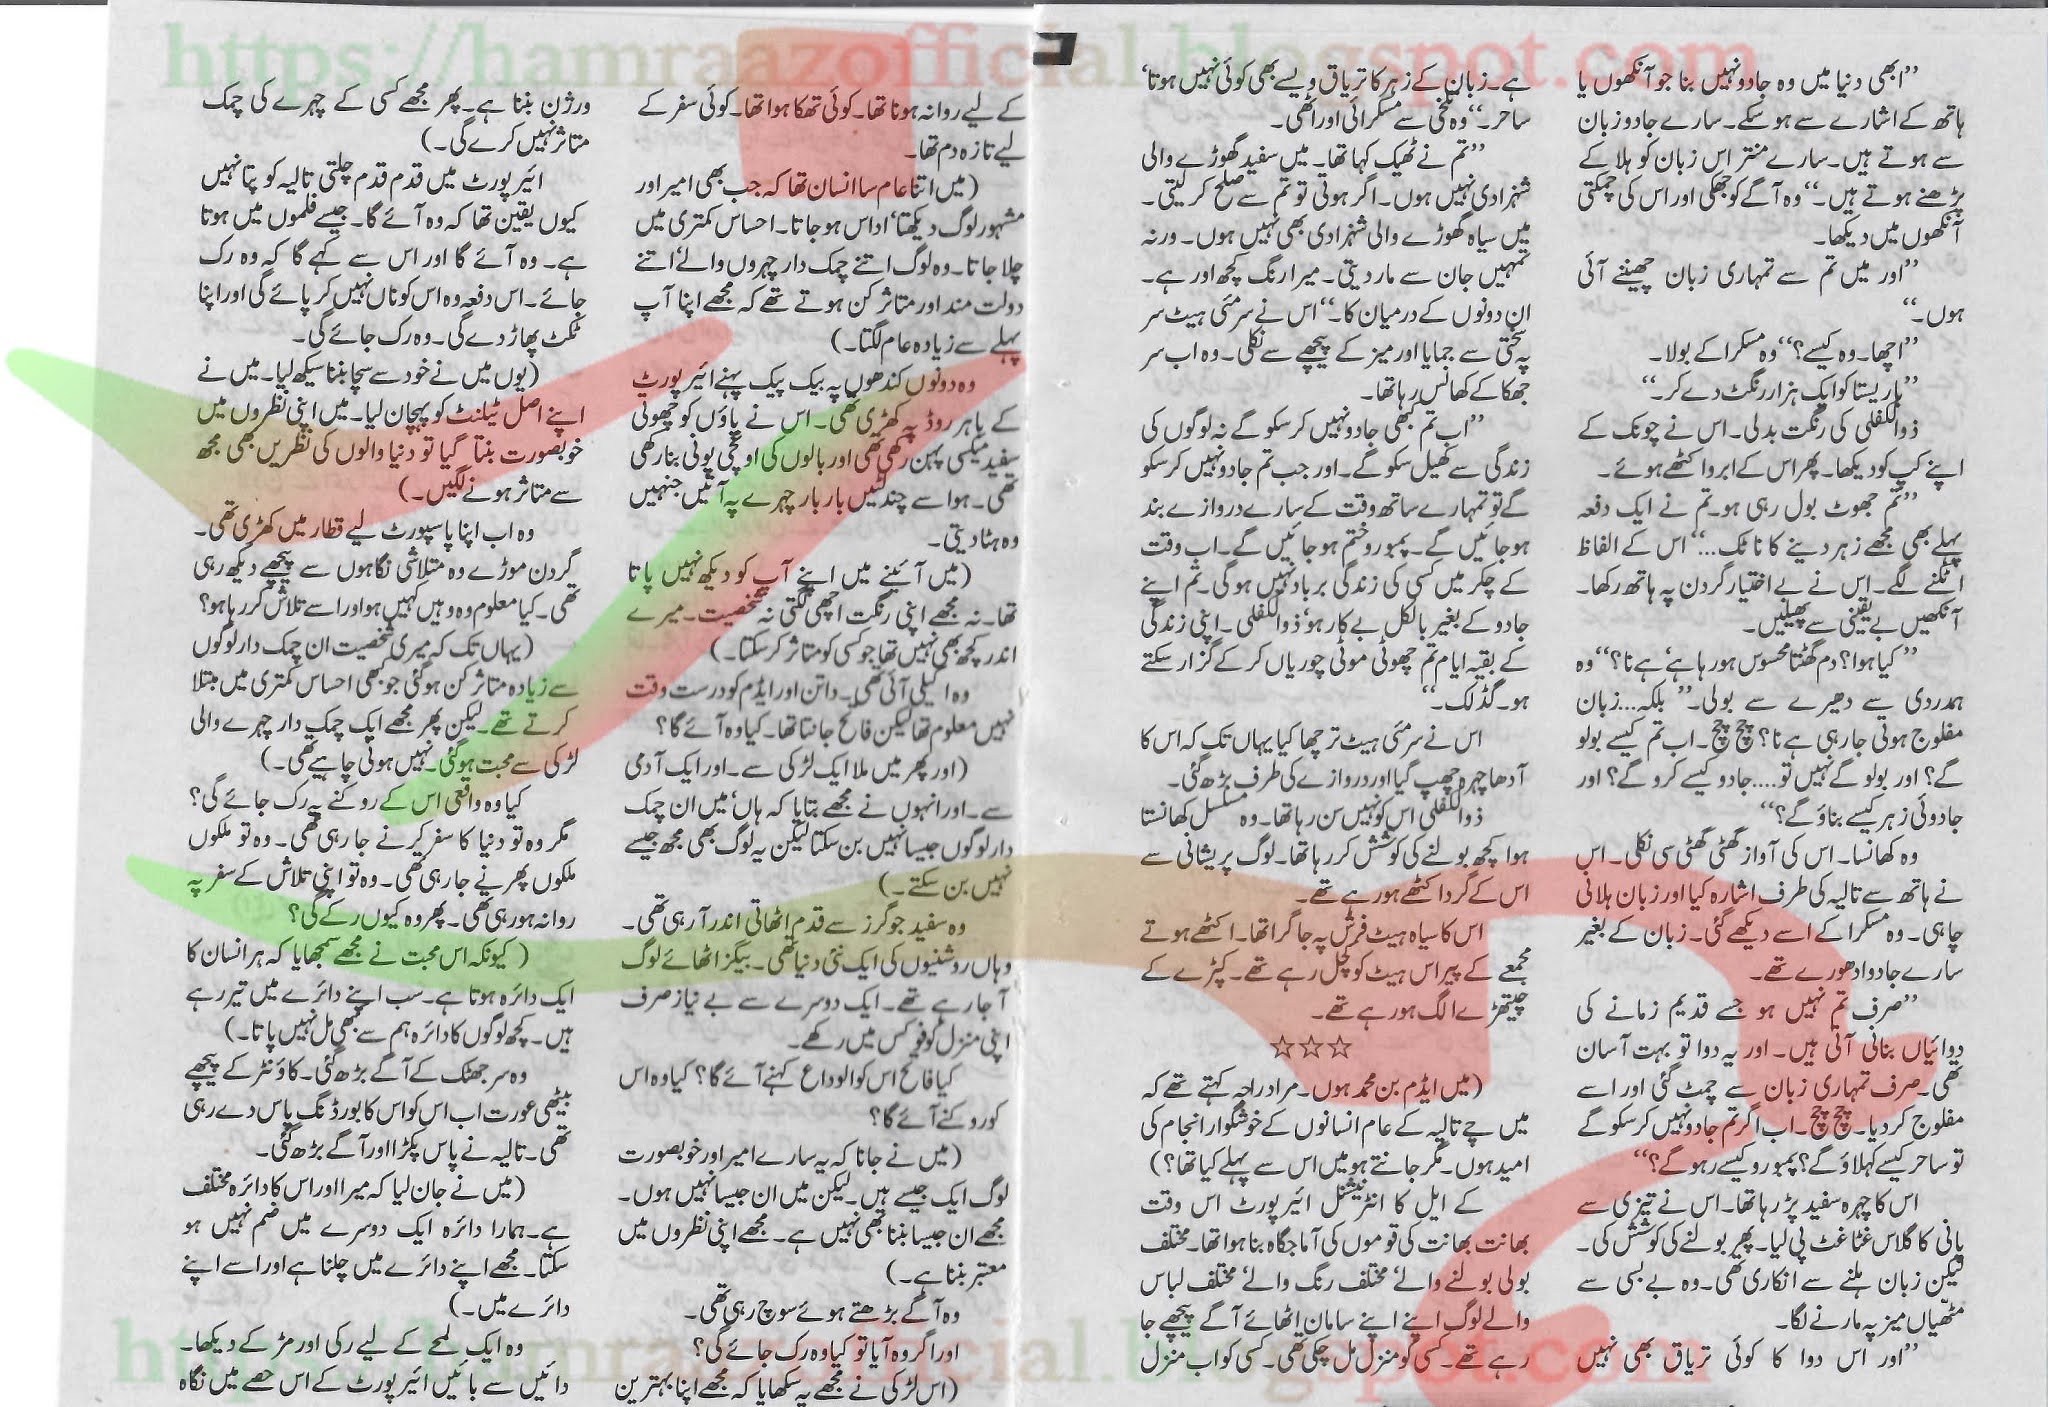 https://hamraazofficial.blogspot.com
"ابھی دنیا میں وہ جادو نہیں بنا جو آنکھوں یا
ہاتھ کے اشارے سے ہو سکے۔ سارے جادو زبان
سے ہوتے ہیں۔ سارے منتر اس زبان کو ہلا کے
پڑھنے ہوتے ہیں۔" وہ آگے کو جھکی اور اس کی چمکتی
آنکھوں میں دیکھا۔
"اور میں تم سے تمہاری زبان چھیننے آئی
ہوں۔"
"اچھا۔ وہ کیسے؟" وہ مسکرا کے بولا۔
"باریستا کو ایک ہزار رنگٹ دے کر۔"
ذوالکفلی کی رنگت بدلی۔ اس نے چونک کے
اپنے کپ کو دیکھا۔ پھر اس کے ابرو اکٹھے ہوئے۔
"تم جھوٹ بول رہی ہو۔ تم نے ایک دفعہ
پہلے بھی مجھے زہر دینے کا ناٹک..." اس کے الفاظ
اٹکنے لگے۔ اس نے بے اختیار گردن پہ ہاتھ رکھا۔
آنکھیں بے یقینی سے پھیلیں۔
"کیا ہوا؟ دم گھٹتا محسوس ہو رہا ہے، ہے نا؟" وہ
ہمدردی سے دھیرے سے بولی۔ "بلکہ... زبان
مفلوج ہوتی جا رہی ہے نا؟ چچ چچ۔ اب تم کیسے بولو
گے؟ اور بولو گے نہیں تو.... جادو کیسے کرو گے؟ اور
جادوئی زہر کیسے بناؤ گے؟"
وہ کھانسا۔ اس کی آواز گھٹی گھٹی سی نکلی۔ اس
نے ہاتھ سے تالیہ کی طرف اشارہ کیا اور زبان ہلانی
چاہی۔ وہ مسکرا کے اسے دیکھے گئی۔ زبان کے بغیر
سارے جادو ادھورے تھے۔
"صرف تم نہیں ہو جسے قدیم زمانے کی
دوائیاں بنانی آتی ہیں۔ اور یہ دوا تو بہت آسان
تھی۔ صرف تمہاری زبان سے چمٹ گئی اور اسے
مفلوج کر دیا۔ چچ چچ۔ اب اگر تم جادو نہیں کر سکو گے
تو ساحر کیسے کہلاؤ گے؟ پمبورو کیسے رہو گے؟"
اس کا چہرہ سفید پڑ رہا تھا۔ اس نے تیزی سے
پانی کا گلاس غٹا غٹ پی لیا۔ پھر بولنے کی کوشش کی۔
لیکن زبان ہلنے سے انکاری تھی۔ وہ بے بسی سے
مٹھیاں میز پہ مارنے لگا۔
"اور اس دوا کا کوئی تریاق بھی نہیں
ہے۔ زبان کے زہر کا تریاق ویسے بھی کوئی نہیں ہوتا،
ساحر۔" وہ تلخی سے مسکرائی اور اٹھی۔
"تم نے ٹھیک کہا تھا۔ میں سفید گھوڑے والی
شہزادی نہیں ہوں۔ اگر ہوتی تو تم سے صلح کر لیتی۔
میں سیاہ گھوڑے والی شہزادی بھی نہیں ہوں۔ ورنہ
تمہیں جان سے مار دیتی۔ میرا رنگ کچھ اور ہے۔
ان دونوں کے درمیان کا۔" اس نے سرمئی ہیٹ سر
پہ سختی سے جمایا اور میز کے پیچھے سے نکلی۔ وہ اب سر
جھکا کے کھانس رہا تھا۔
"اب تم کبھی جادو نہیں کر سکو گے نہ لوگوں کی
زندگی سے کھیل سکو گے۔ اور جب تم جادو نہیں کر سکو
گے تو تمہارے ساتھ وقت کے سارے دروازے بند
ہو جائیں گے۔ پمبورو ختم ہو جائیں گے۔ اب وقت
کے چکر میں کسی کی زندگی برباد نہیں ہو گی۔ تم اپنے
جادو کے بغیر بالکل بے کار ہو، ذوالکفلی۔ اپنی زندگی
کے بقیہ ایام تم چھوٹی موٹی چوریاں کر کے گزار سکتے
ہو۔ گڈ لک۔"
اس نے سرمئی ہیٹ ترچھا کیا یہاں تک کہ اس کا
آدھا چہرہ چھپ گیا اور دروازے کی طرف بڑھ گئی۔
ذوالکفلی اس کو نہیں سن رہا تھا۔ وہ مسلسل کھانستا
ہوا کچھ بولنے کی کوشش کر رہا تھا۔ لوگ پریشانی سے
اس کے گرد اکٹھے ہو رہے تھے۔
اس کا سیاہ ہیٹ فرش پہ جا گرا تھا۔ اکٹھے ہوتے
مجمعے کے پیر اس ہیٹ کو کچل رہے تھے۔ کپڑے کے
چیتھڑے الگ ہو رہے تھے۔
☆☆☆
(میں ایڈم بن محمد ہوں۔ مراد راجہ کہتے تھے کہ
میں چے تالیہ کے عام انسانوں کے خوشگوار انجام کی
امید ہوں۔ مگر جانتے ہو میں اس سے پہلے کیا تھا؟)
کے ایل کا انٹرنیشنل ائیرپورٹ اس وقت
بھانت بھانت کی قوموں کی آماجگاہ بنا ہوا تھا۔ مختلف
بولی بولنے والے، مختلف رنگ والے، مختلف لباس
والے لوگ اپنے اپنے سامان اٹھائے آگے پیچھے جا
رہے تھے۔ کسی کو منزل مل چکی تھی۔ کسی کو اب منزل
کے لیے روانہ ہونا تھا۔ کوئی تھکا ہوا تھا۔ کوئی سفر کے
لیے تازہ دم تھا۔
(میں اتنا عام سا انسان تھا کہ جب بھی امیر اور
مشہور لوگ دیکھتا، اداس ہو جاتا۔ احساس کمتری میں
چلا جاتا۔ وہ لوگ اتنے چمک دار چہروں والے، اتنے
دولت مند اور متاثر کن ہوتے تھے کہ مجھے اپنا آپ
پہلے سے زیادہ عام لگتا۔)
وہ دونوں کندھوں پہ بیک پیک پہنے ائیرپورٹ
کے باہر روڈ پہ کھڑی تھی۔ اس نے پاؤں کو چھوتی
سفید میکسی پہن رکھی تھی اور بالوں کی اونچی پونی بنا رکھی
تھی۔ ہوا سے چند لٹیں بار بار چہرے پہ آتیں جنہیں
وہ ہٹا دیتی۔
(میں آئینے میں اپنے آپ کو دیکھ نہیں پاتا
تھا۔ نہ مجھے اپنی رنگت اچھی لگتی نہ شخصیت۔ میرے
اندر کچھ بھی نہیں تھا جو کسی کو متاثر کر سکتا۔)
وہ اکیلی آئی تھی۔ داتن اور ایڈم کو درست وقت
نہیں معلوم تھا لیکن فاتح جانتا تھا۔ کیا وہ آئے گا؟
(اور پھر میں ملا ایک لڑکی سے۔ اور ایک آدمی
سے۔ اور انہوں نے مجھے بتایا کہ ہاں، میں ان چمک
دار لوگوں جیسا نہیں بن سکتا لیکن یہ لوگ بھی مجھ جیسے
نہیں بن سکتے۔)
وہ سفید جوگرز سے قدم اٹھاتی اندر آ رہی تھی۔
وہاں روشنیوں کی ایک نئی دنیا تھی۔ بیگز اٹھائے لوگ
آ جا رہے تھے۔ ایک دوسرے سے بے نیاز صرف
اپنی منزل کو فوکس میں رکھے۔
کیا فاتح اس کو الوداع کہنے آئے گا؟ کیا وہ اس
کو روکنے آئے گا؟
(میں نے جانا کہ یہ سارے امیر اور خوبصورت
لوگ ایک جیسے ہیں۔ لیکن میں ان جیسا نہیں ہوں۔
مجھے ان جیسا بننا بھی نہیں ہے۔ مجھے اپنی نظروں میں
معتبر بننا ہے۔)
وہ آگے بڑھتے ہوئے سوچ رہی تھی۔
اور اگر وہ آیا تو کیا وہ رک جائے گی؟
(اس لڑکی نے مجھے یہ سکھایا کہ مجھے اپنا بہترین
ورژن بننا ہے۔ پھر مجھے کسی کے چہرے کی چمک
متاثر نہیں کرے گی۔)
ائیرپورٹ میں قدم قدم چلتی تالیہ کو پتا نہیں
کیوں یقین تھا کہ وہ آئے گا۔ جیسے فلموں میں ہوتا
ہے۔ وہ آئے گا اور اس سے کہے گا کہ وہ رک
جائے۔ اس دفعہ وہ اس کو ناں نہیں کر پائے گی اور اپنا
ٹکٹ پھاڑ دے گی۔ وہ رک جائے گی۔
(یوں میں نے خود سے سچا بننا سیکھ لیا۔ میں نے
اپنے اصل ٹیلنٹ کو پہچان لیا۔ میں اپنی نظروں میں
خوبصورت بنتا گیا تو دنیا والوں کی نظریں بھی مجھ
سے متاثر ہونے لگیں۔)
وہ اب اپنا پاسپورٹ لیے قطار میں کھڑی تھی۔
گردن موڑے وہ متلاشی نگاہوں سے پیچھے دیکھ رہی
تھی۔ کیا معلوم وہ وہیں کہیں ہو اور اسے تلاش کر رہا ہو؟
(یہاں تک کہ میری شخصیت ان چمک دار لوگوں
سے زیادہ متاثر کن ہو گئی جو کبھی احساس کمتری میں مبتلا
کرتے تھے۔ لیکن پھر مجھے ایک چمک دار چہرے والی
لڑکی سے محبت ہو گئی۔ نہیں ہونی چاہیے تھی۔)
کیا وہ واقعی اس کے روکنے پہ رک جائے گی؟
مگر وہ تو دنیا کا سفر کرنے جا رہی تھی۔ وہ تو ملکوں
ملکوں پھرنے جا رہی تھی۔ وہ تو اپنی تلاش کے سفر پہ
روانہ ہو رہی تھی۔ پھر وہ کیوں رکے گی؟
(کیونکہ اس محبت نے مجھے سمجھایا کہ ہر انسان کا
ایک دائرہ ہوتا ہے۔ سب اپنے دائرے میں تیر رہے
ہیں۔ کچھ لوگوں کا دائرہ ہم سے کبھی مل نہیں پاتا۔)
وہ سر جھٹک کے آگے بڑھ گئی۔ کاؤنٹر کے پیچھے
بیٹھی عورت اب اس کو اس کا بورڈنگ پاس دے رہی
تھی۔ تالیہ نے پاس پکڑا اور آگے بڑھ گئی۔
(میں نے جان لیا کہ میرا اور اس کا دائرہ مختلف
ہے۔ ہمارا دائرہ ایک دوسرے میں ضم نہیں ہو
سکتا۔ مجھے اپنے دائرے میں چلنا ہے اور اسے اپنے
دائرے میں۔)
وہ ایک لمحے کے لیے رکی اور مڑ کے دیکھا۔
دائیں سے بائیں ائیرپورٹ کے اس حصے میں نگاہ
https://hamraazofficial.blogspot.com